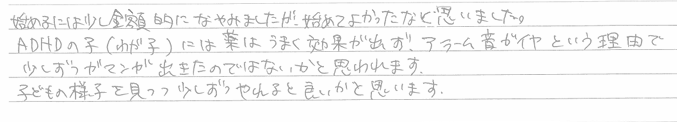 始めるには少し金額的になやみましたが、始めてよかったなと思いました。
ADHDの子(わが子)には薬はうまく効果が出ず、アラーム音がイヤという理由で
少しずつガマンが出きたのではないかと思われます。
子どもの様子を見つつ少しずつやれると良いかと思います。